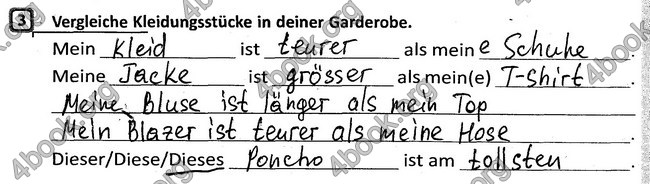 3 Vergleiche Kleidungsstücke in deiner Garderobe.
Mein Kleid ist teurer als meine Schuhe.
Meine Jacke ist grösser als mein(e) T-shirt.
Meine Bluse ist länger als mein Top.
Mein Blazer ist teurer als meine Hose.
Dieser/Diese/Dieses Poncho ist am tollsten.